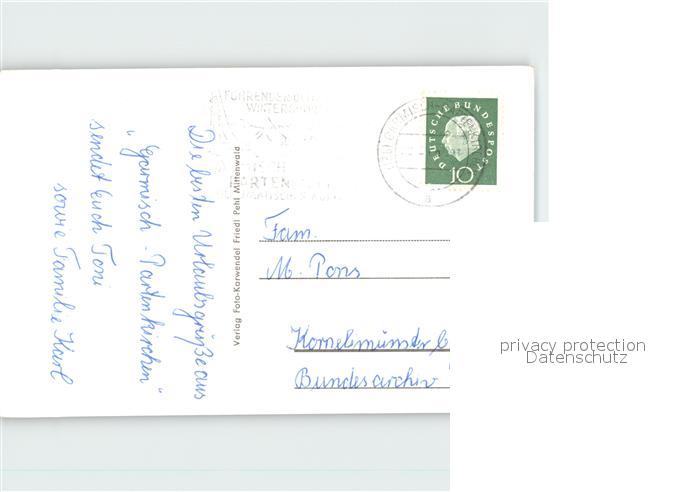 Die besten Urlaubsgrüße aus
"Garmisch - Partenkirchen"
sendet Euch Toni
sowie Familie Karl
Verlag Foto-Karwendel Friedl Pehl Mittenwald
FÜHRENDER
WINTERSPORT
PARTEN
DEUTSCHE BUNDESPOST
10
a
Fam.
M. Pons
Kornelimünster
Bundesarchiv
privacy protection
Datenschutz